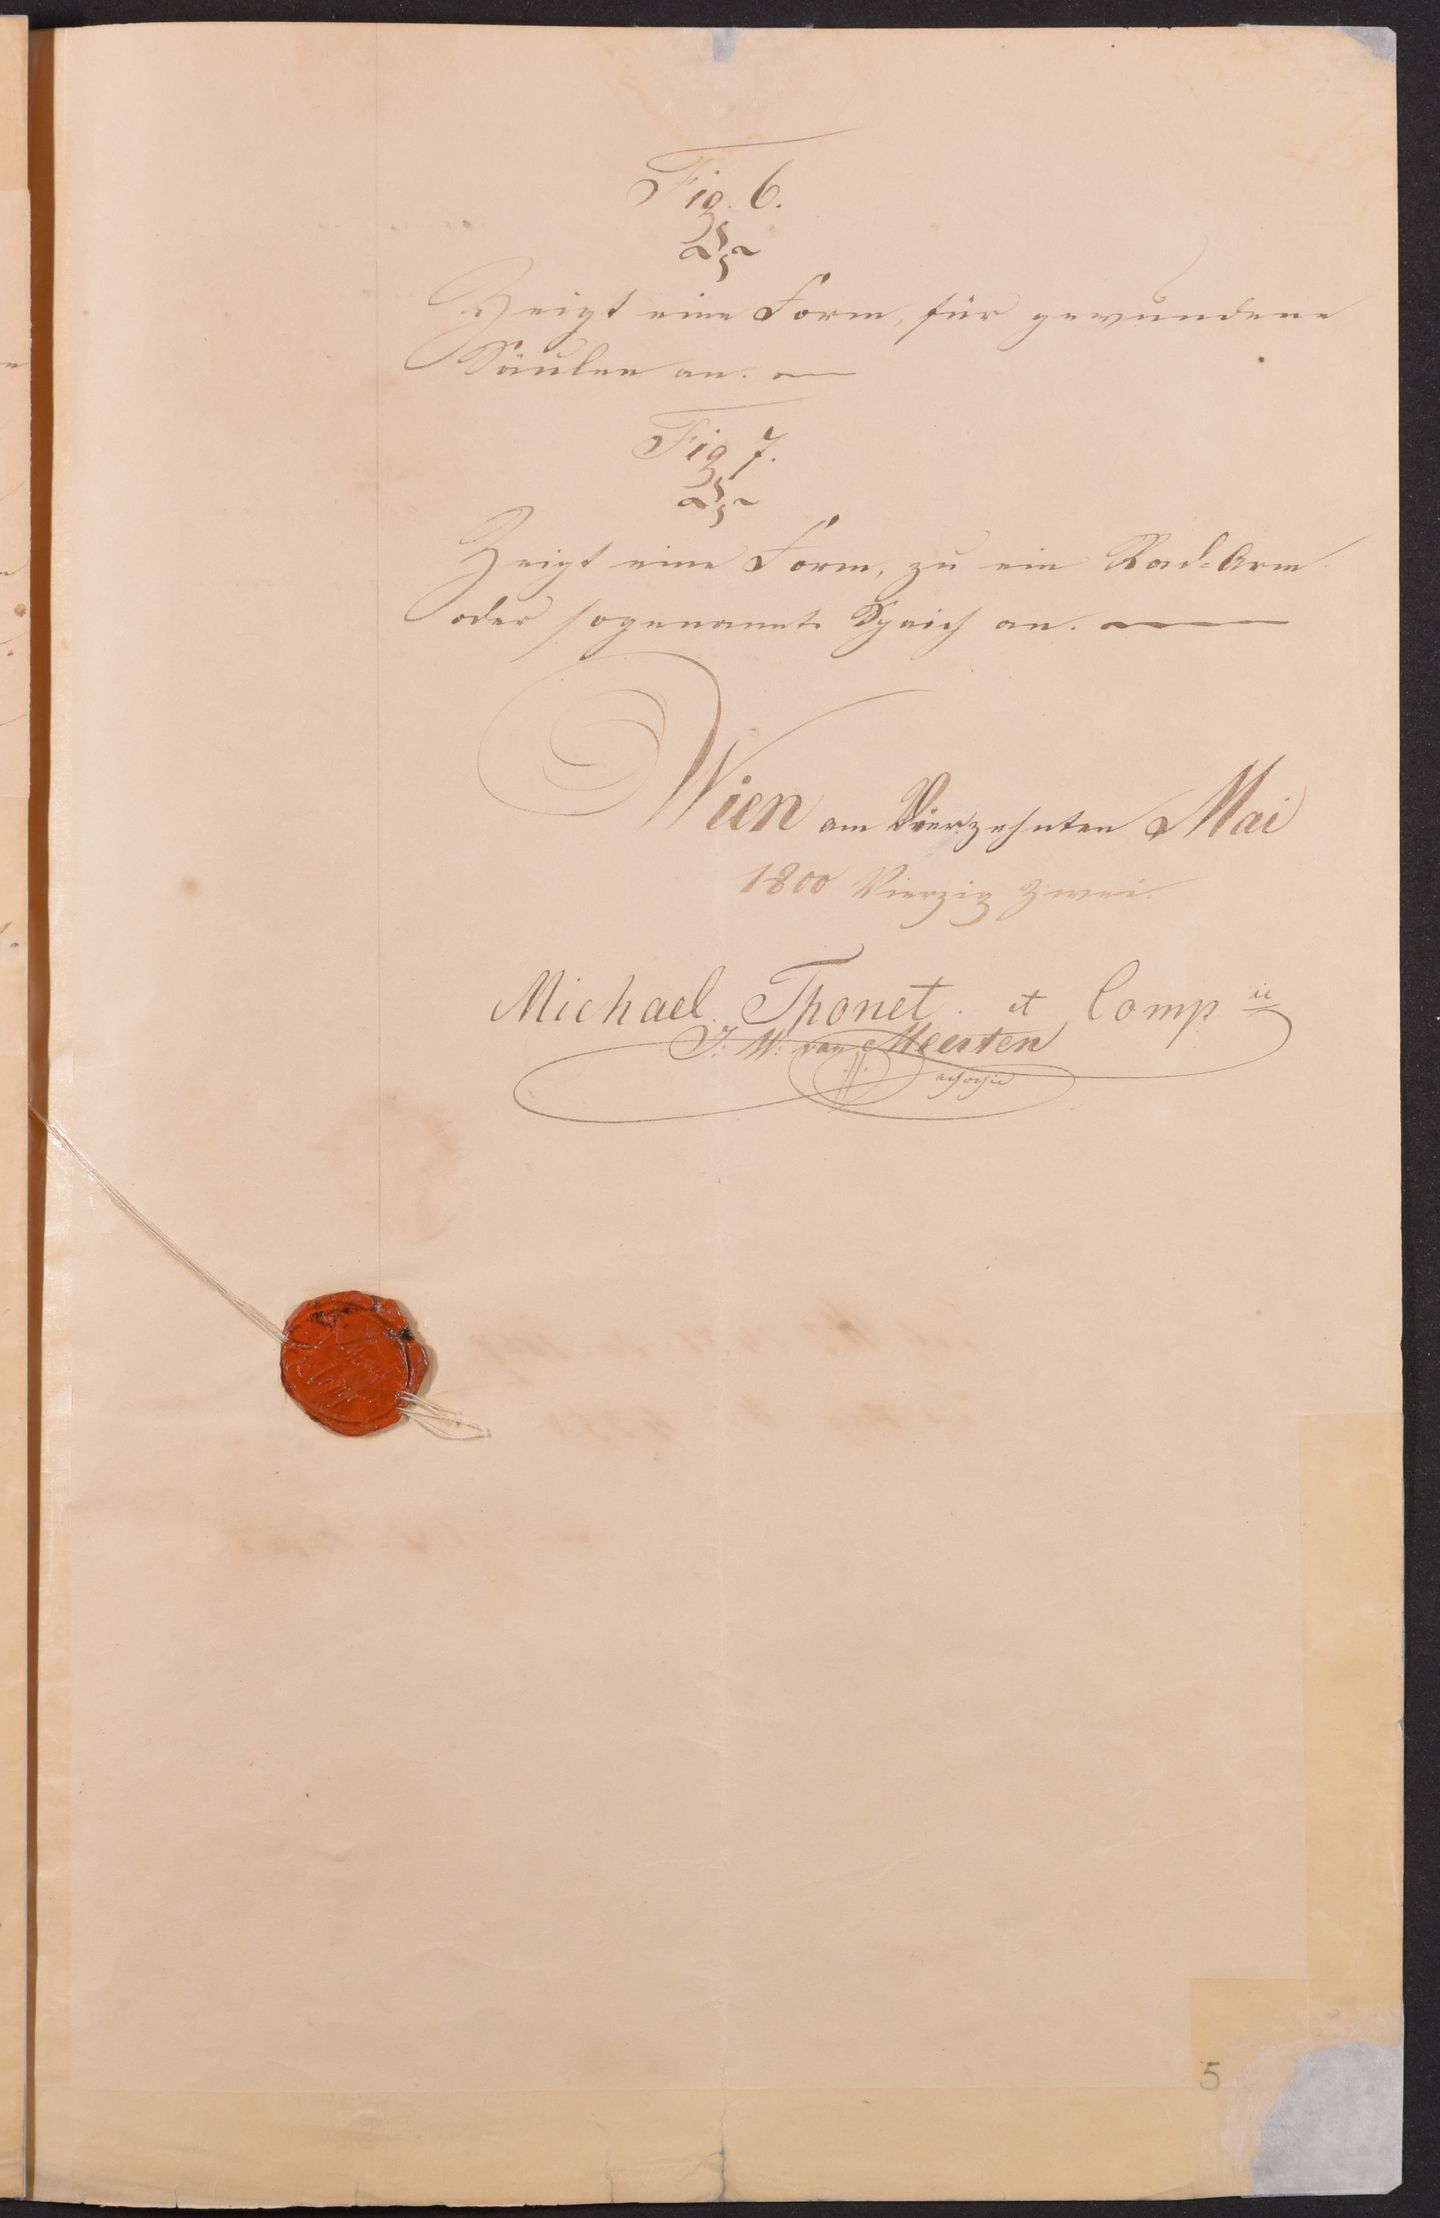 Fig. 6.
Zeigt eine Form, für gewundene
Säulen an.
Fig 7.
Zeigt eine Form, zu ein Rad-Arm
oder sogenannte Speich an.
Wien am Vierzehnten Mai
1800 Vierzig Zwei.
Michael Thonet. et Comp
J: W: van Meerten
5